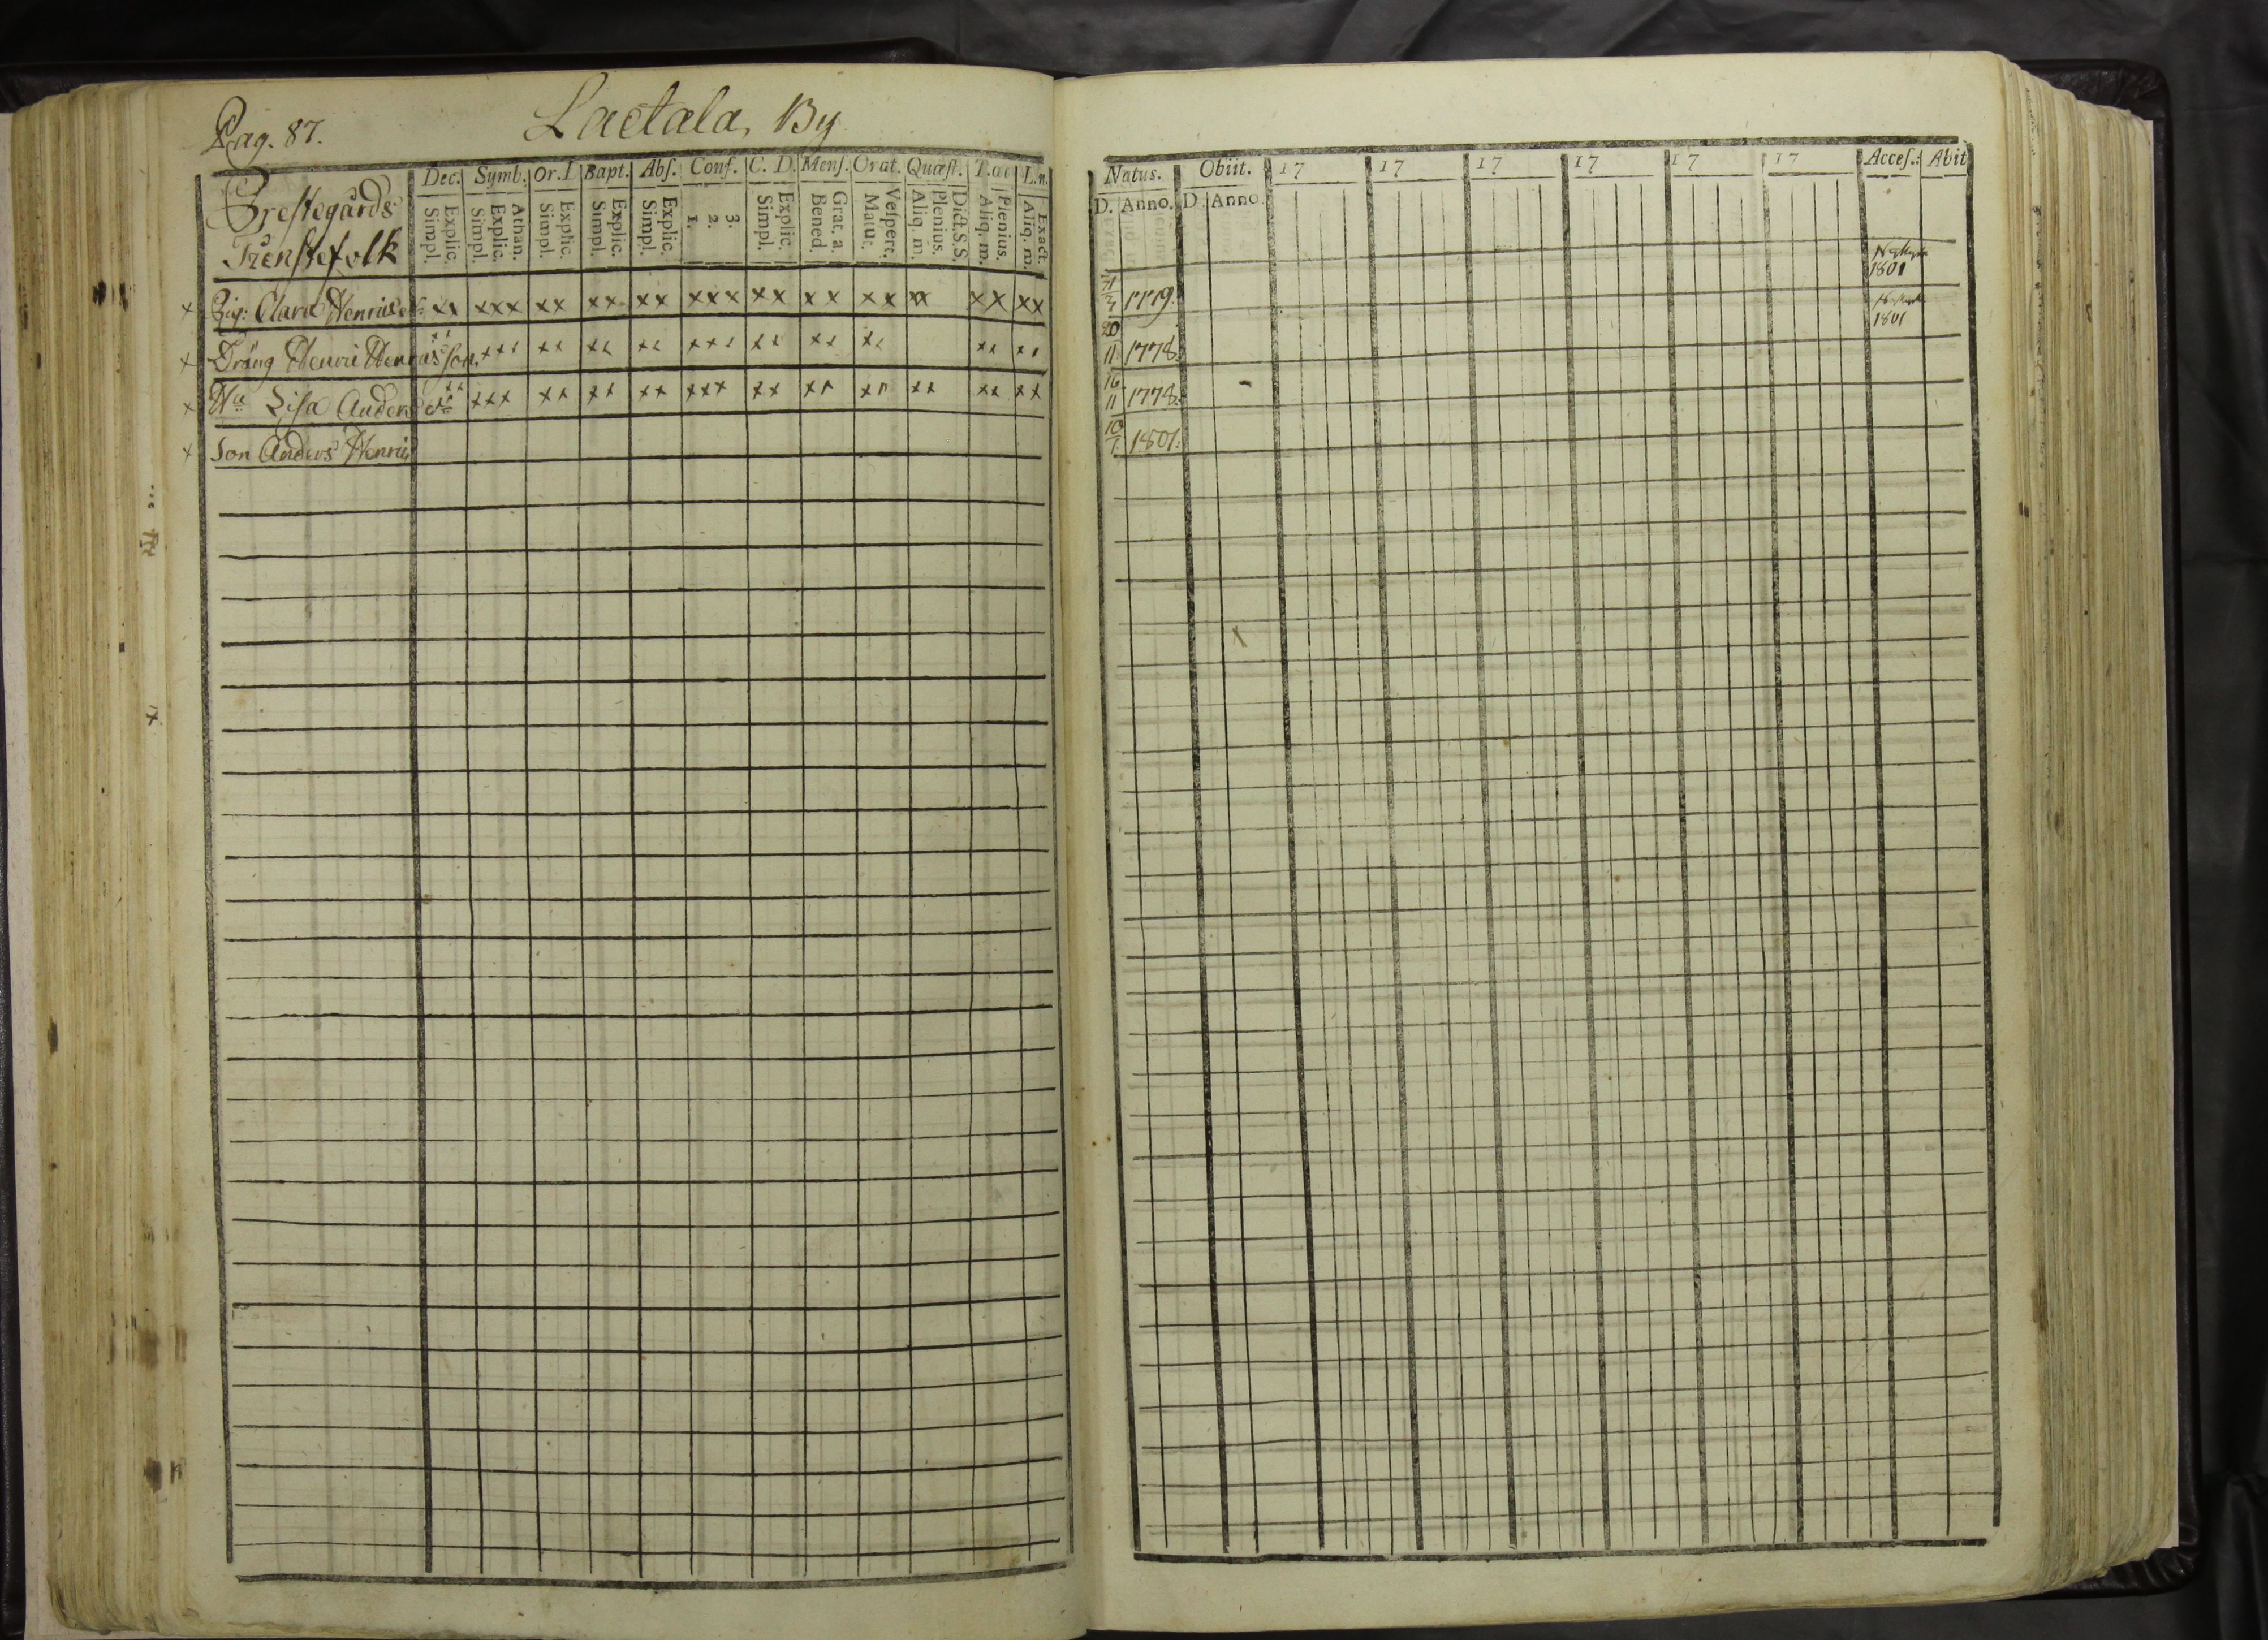 Pag. 87. Lactala, By
Prestegårds
Tienstefolk
Dec. Symb. Or. D Bapt. Abs. Conf. C. D. Mens. Orat. Quæst. L.n.
Explic. Simpl. Athan. Explic. Simpl. Explic. Simpl. Explic. Simpl. Explic. Simpl. 3. 2. 1. Explic. Simpl. Grat. a. Bened. Vespert. Matut. Dict. S.S. Plenius. Aliq. m. Plenius. Aliq. m. Exact. Aliq. m.
Natus. Obiit. 17 17 17 17 17 17 Acces. Abit
D. Anno. D. Anno
Pig: Clara Henrics xx xxx xx xx xx xxx xx xx xx xx xx xx 1779. 1801
Dräng Henric Henricsson xx xxx xx xx xx xxx xx xx xx xx xx 20/11 1778. 1801
Hu Lisa Anders xx xxx xx xx xx xxx xx xx xx xx xx xx 16/11 1778.
Son Anders Henric 10/1 1801.